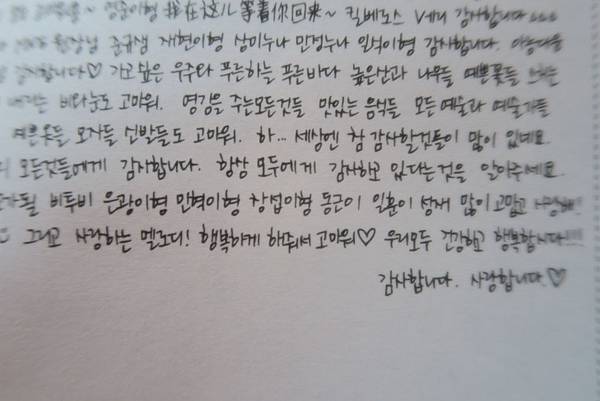 영준이형 我在这儿等着你回来~ 킬베로스 V세니 감사합니다
원장님 준규쌤 재현이형 상미누나 민경누나 인혁이형 감사합니다.
감사합니다♡ 가고싶은 우주와 푸른하늘 푸른바다 높은산과 나무들 예쁜꽃들
내리는 비와눈도 고마워. 영감을 주는모든것들 맛있는 음식들 모든예술과 예술가들
예쁜옷들 모자들 신발들도 고마워. 하... 세상엔 참 감사할것들이 많이 있네요.
모든것들에게 감사합니다. 항상 모두에게 감사하고 있다는것을 알아주세요.
비투비 은광이형 민혁이형 창섭이형 동근이 일훈이 성재 많이 고맙고 사랑해!
그리고 사랑하는 멜로디! 행복하게 해줘서 고마워♡ 우리모두 건강하고 행복합시다!!!
감사합니다. 사랑합니다.♡